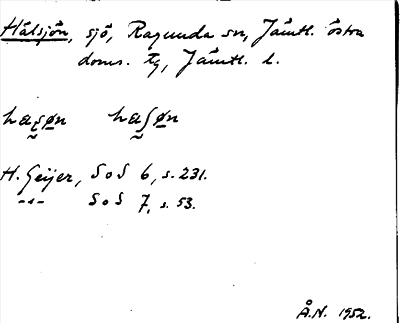 Hålsjön, sjö, Ragunda sn, Jämtl. östra
doms. tg, Jämtl. l.
H. Geijer, SoS 6, s. 231.
-"- SoS 7, s. 53.
Å.N. 1952.